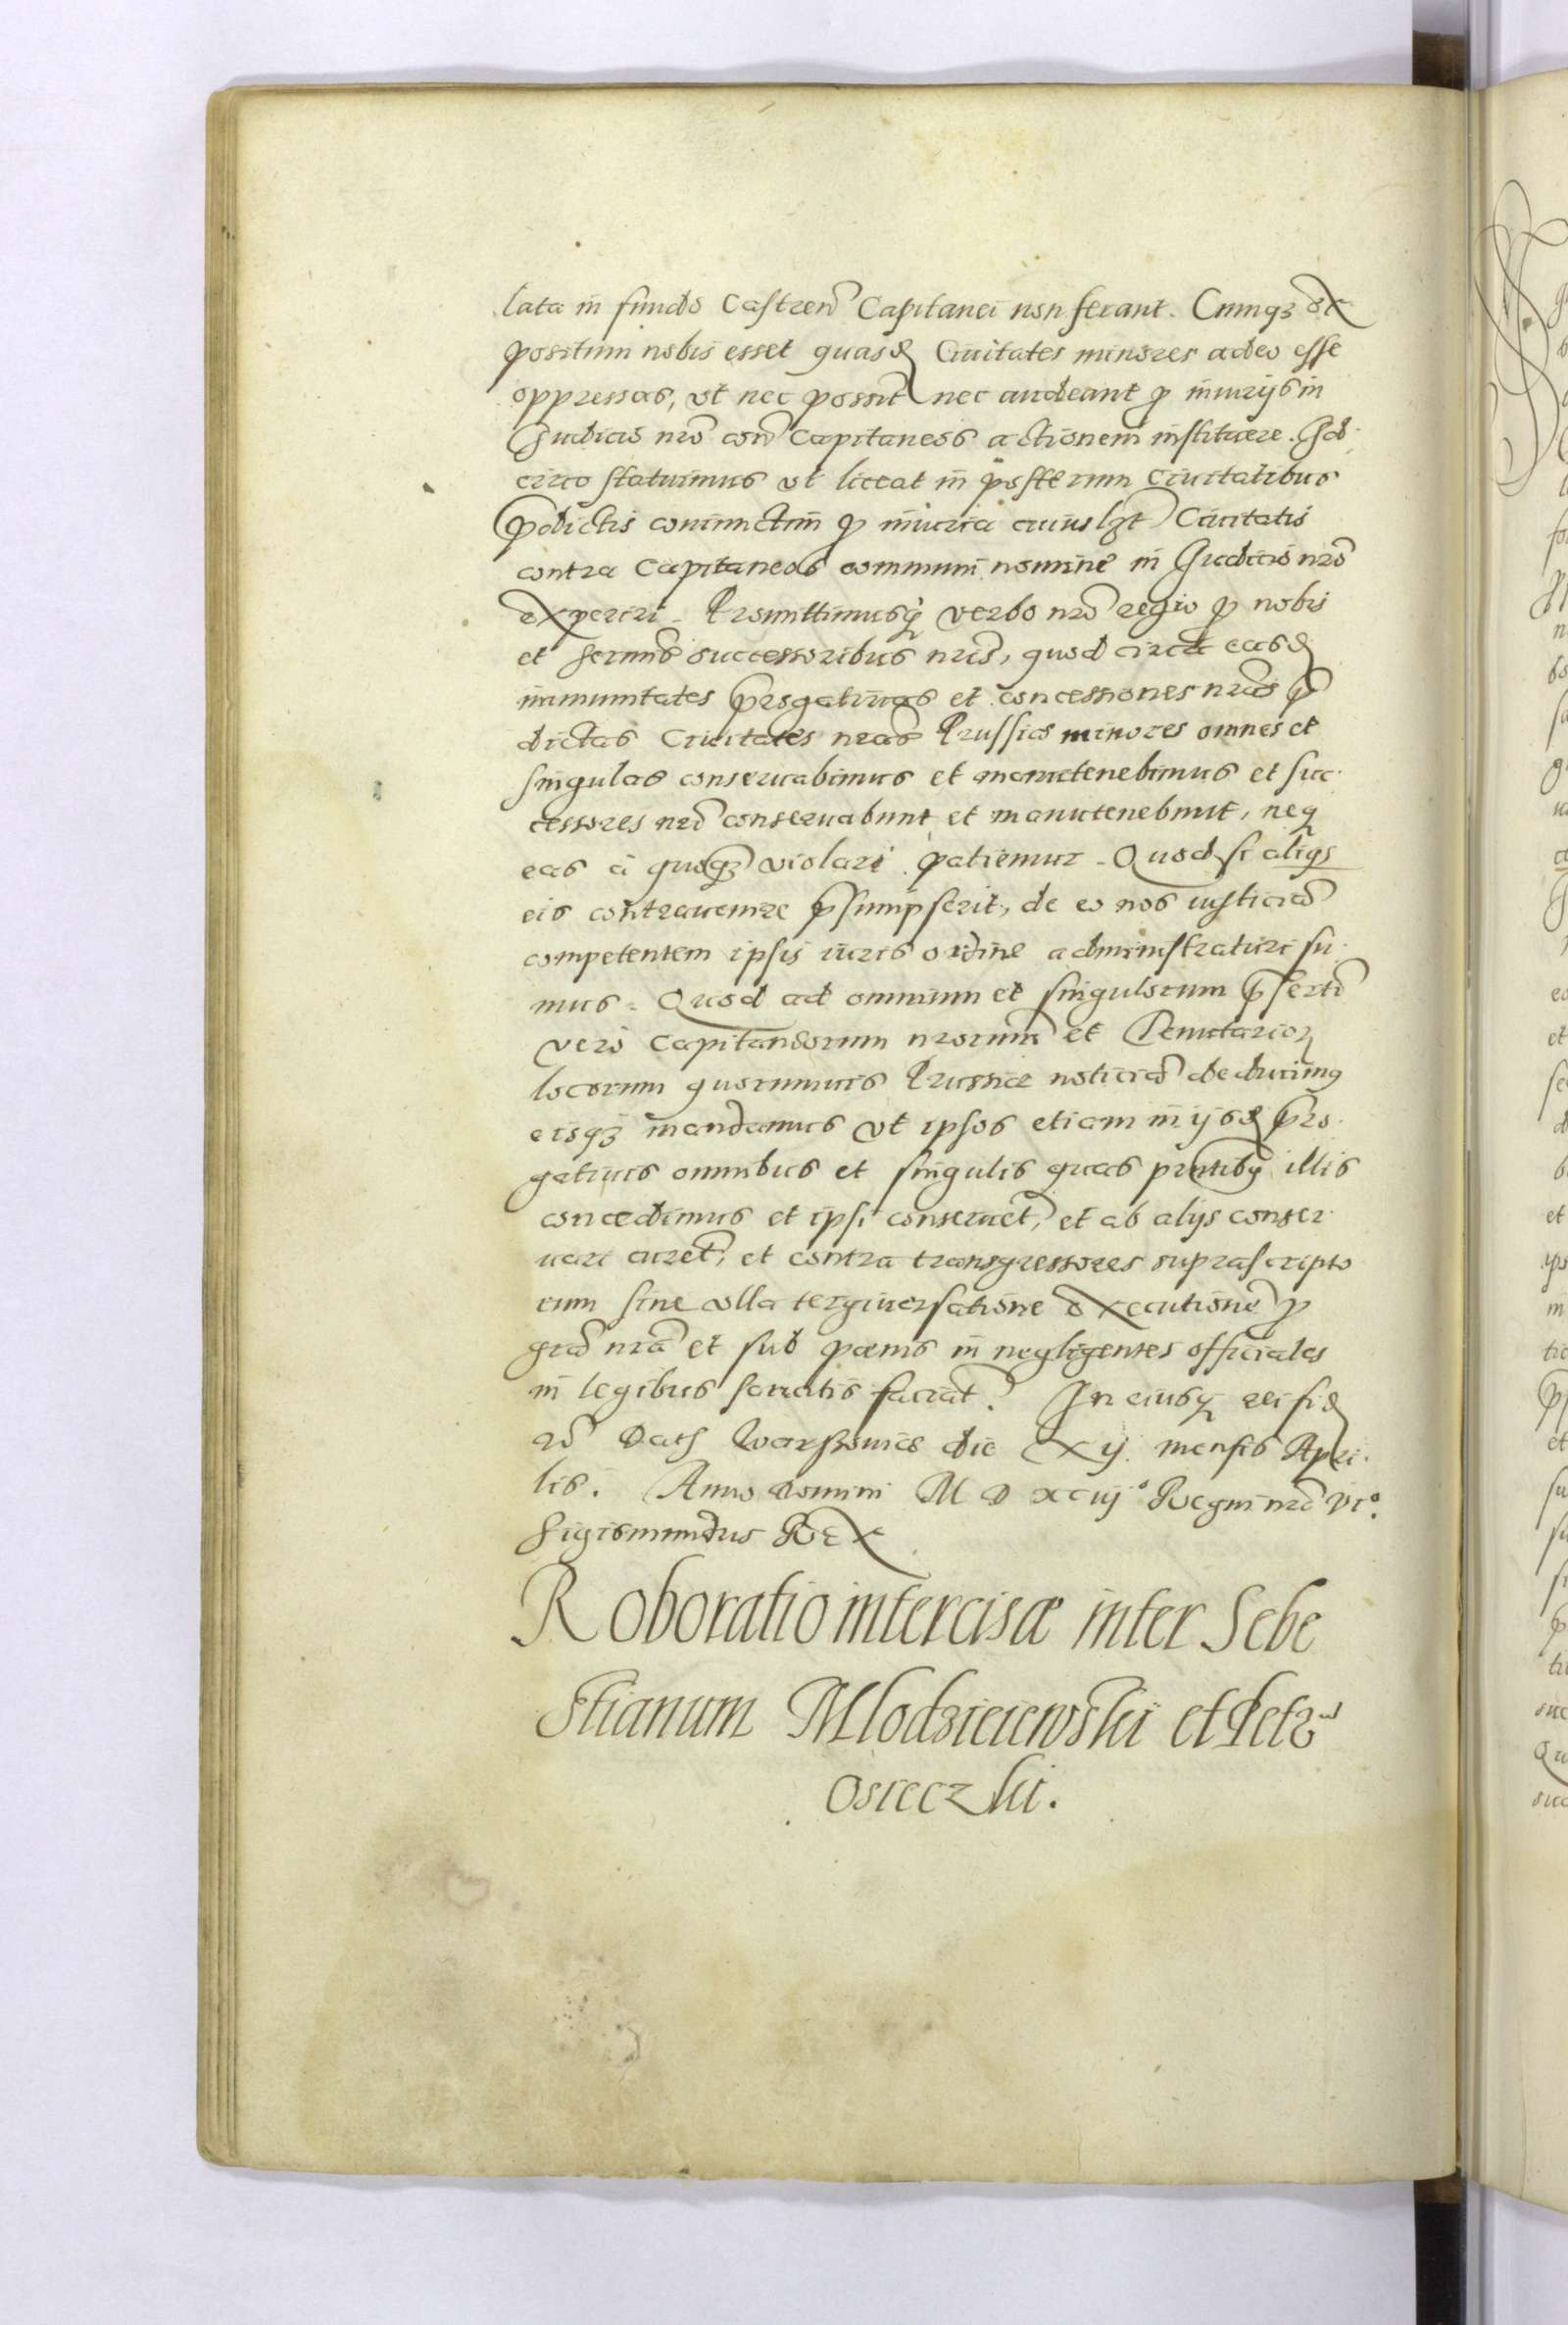 lata in fundo Castren Capitanei non ferant. Cumqz ex
positum nobis esset quasd Civitates minores adeo esse
oppressas, vt nec possint nec audeant p iniurijs in
Judicio nro con Capitaneos actionem instituere. Id
circo statuimus vt liceat in posterum Civitatibus
pdictis coniunctim p iniuria cuiuslzt Civitatis
contra Capitaneos communi nomine in Judicio nro
experiri. Promittimusq verbo nro regio p nobis
et sermis successoribus nris, quod circa easd
immunitates prrogativas et concessiones nras p
dictas Civitates nras Prussiae minores omnes et
singulas conseruabimus et manutenebimus et suc
cessores nri conseruabunt et manutenebunt, neq
eas à quoqz violari patiemur. Quod si aliqs
eis contravenire psumpserit, de eo nos iusticia
competentem ipsis iuris ordine administraturi su
mus. Quod ad omnium et singulorum psertī
vero Capitaneorum nrorum et Tenutarior
locorum quorumuis Prussiae noticia deducimus
eisqz mandamus vt ipsos etiam in ijsd prro
gatiuis omnibus et singulis quas pntibq illis
concedimus et ipsi conseruet, et ab alijs conser
uari curet, et contra transgressores suprascripto
rum sine vlla tergiuersatione executione p
gra nra et sub poenis in negligentes officiales
in legibus sancitis faciat. In eiusq rei fid
Dat Warssouiae die XII mensis Apri
lis. Anno Domini M D XCIIJ° Regni nri VI°.
Sigismundus Rex
Roboratio intercisæ inter Sebe
stianum Mlodzieiewski et Petr
Osieczki.